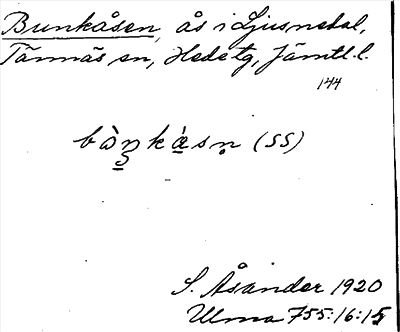 Bunkåsen, ås i Ljusnedal,
Tännäs sn, Hede tg, Jämtl. l.
144
bòn̠kàsn̥ (SS)
S. Åsander 1920
Ulma 755:16:15